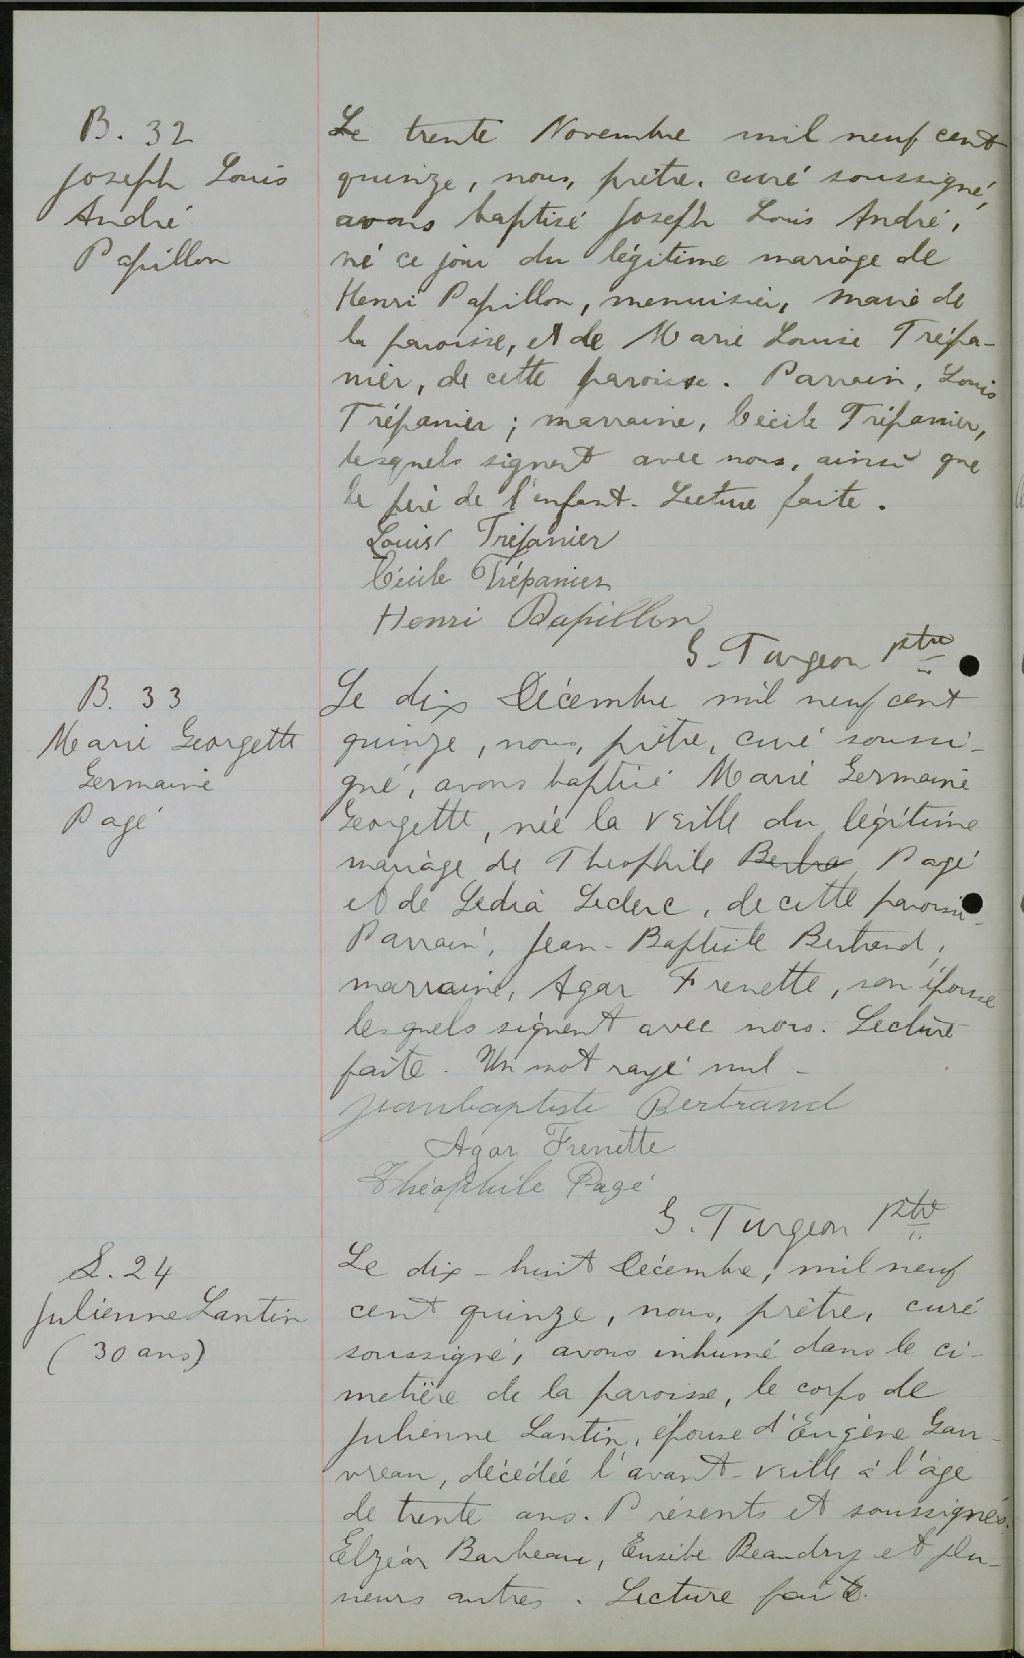 B. 32
Joseph Louis
André
Papillon
Le trente Novembre mil neuf cent
quinze, nous, prêtre, curé soussigné,
avons baptisé Joseph Louis André,
né ce jour du légitime mariage de
Henri Papillon, menuisier,
la paroisse, et de Marie Louise Trépa-
nier, de cette paroisse. Parrain, Louis
Trépanier; marraine, Cécile Trépanier,
lesquels signent avec nous, ainsi que
le père de l'enfant. Lecture faite.
Louis Trépanier
Cécile Trépanier
Henri Papillon
G. Turgeon ptre
B. 33
Marie Georgette
Germaine
Pagé
Le dix Décembre mil neuf cent
quinze, nous, prêtre, curé soussi-
gné, avons baptisé Marie Germaine
Georgette, née la veille du légitime
mariage de Théophile Pagé
et de Ledia Leclerc, de cette paroisse.
Parrain, Jean-Baptiste Bertrand,
marraine, Agar Frenette, son épouse
lesquels signent avec nous. Lecture
faite. Un mot rayé nul -
Jeanbaptiste Bertrand
Agar Frenette
Théophile Pagé
G. Turgeon ptre
S. 24
Julienne Lantin
(30 ans)
Le dix-huit Décembre, mil neuf
cent quinze, nous, prêtre, curé
soussigné, avons inhumé dans le ci-
metière de la paroisse, le corps de
Julienne Lantin, épouse d'Eugène Gau-
vreau, décédée l'avant-veille à l'âge
de trente ans. Présents et soussignés.
Elzéar Barbeau, Eusèbe Beaudry et plu-
sieurs autres. Lecture faite.